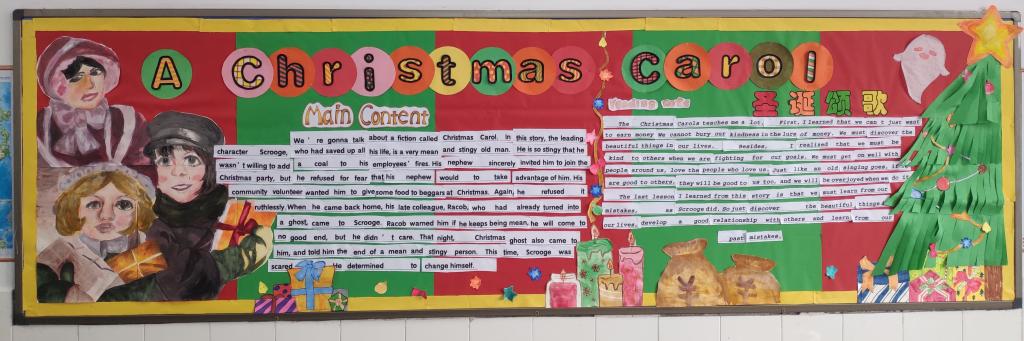 A Christmas Carol
Main Content
We're gonna talk about a fiction called Christmas Carol. In this story, the leading
character Scrooge, who had saved up all his life, is a very mean and stingy old man. He is so stingy that he
wasn't willing to add a coal to his employees' fires. His nephew sincerely invited him to join the
Christmas party, but he refused for fear that his nephew would to take advantage of him. His
community volunteer wanted him to give some food to beggars at Christmas. Again, he refused it
ruthlessly. When he came back home, his late colleague, Racob, who had already turned into
a ghost, came to Scrooge. Racob warned him if he keeps being mean, he will come to
no good end, but he didn't care. That night, Christmas ghost also came to
him, and told him the end of a mean and stingy person. This time, Scrooge was
scared. He determined to change himself.
圣诞颂歌
The Christmas Carols teaches me a lot. First, I learned that we can't just want
to earn money We cannot bury our kindness in the lure of money. We must discover the
beautiful things in our lives. Besides, I realised that we must be
kind to others when we are fighting for our goals. We must get on well with
people around us, love the people who love us. Just like an old singing goes, if
are good to others, they will be good to us too, and we will be overjoyed when we do it
The last lesson I learned from this story is that we must learn from our
mistakes, as Scrooge did. So just discover the beautiful things
our lives, develop a good relationship with others and learn from our
past mistakes.